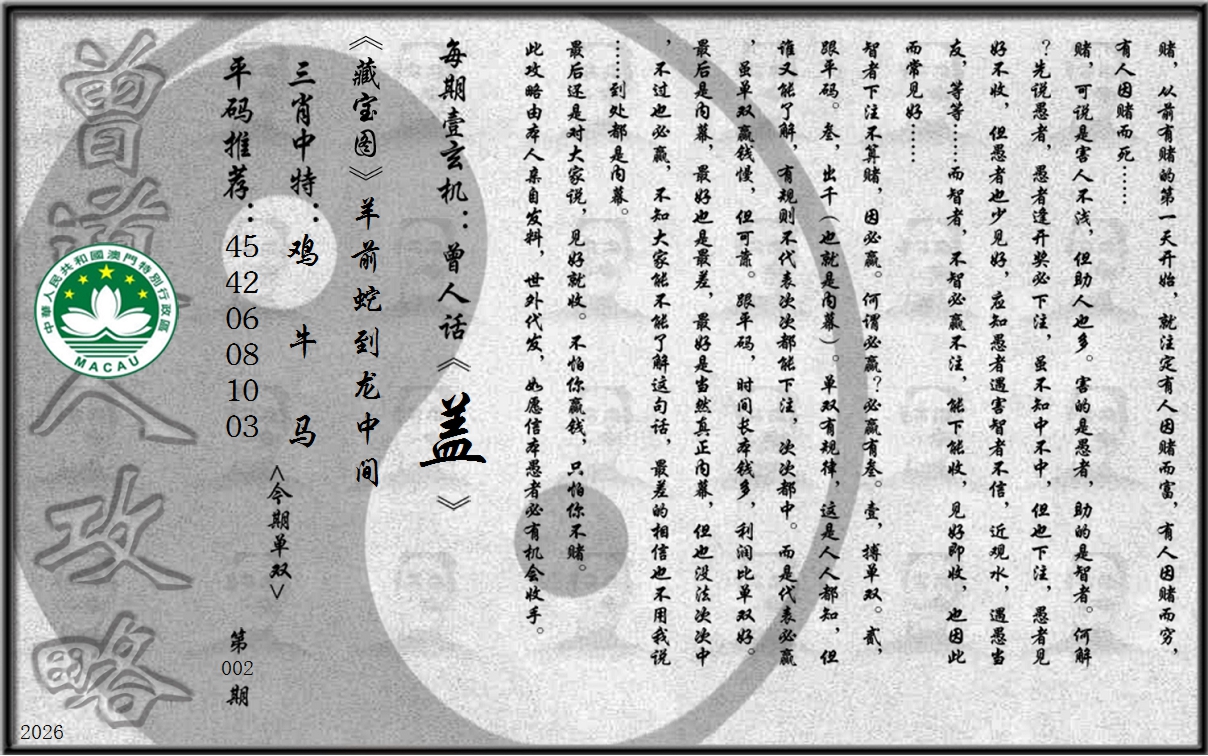 赌，从前有赌的第一天开始，就注定有人因赌而富，有人因赌而穷，
有人因赌而死……
赌，可说是害人不浅，但助人也多。害的是愚者，助的是智者。何解
？先说愚者，愚者逢开奖必下注，虽不知中不中，但也下注，愚者见
好不收，但愚者也少见好，应知愚者遇害智者不信，近观水，遇愚当
友，等等……而智者，不智必赢不注，能下能收，见好即收，也因此
而常见好……
智者下注不算赌，因必赢。何谓必赢？必赢有叁。壹，搏单双。贰，
跟平码。叁，出千（也就是内幕）。单双有规律，这是人人都知，但
谁又能了解，有规则不代表次次都能下注，次次都中。而是代表必赢
，虽单双赢钱慢，但可靠。跟平码，时间长本钱多，利润比单双好。
最后是内幕，最好也是最差，最好是当然真正内幕，但也没法次次中
，不过也必赢，不知大家能不能了解这句话，最差的相信也不用我说
……到处都是内幕。
最后还是对大家说，见好就收。不怕你赢钱，只怕你不赌。
此攻略由本人亲自发料，世外代发，如愿信本愚者必有机会收手。
每期壹玄机：曾人话《盖》
《藏宝图》羊前蛇到龙中间
三肖中特：鸡 牛 马
<今期单双>
平码推荐：45 42 06 08 10 03
第002期
曾道人攻略
中華人民共和國澳門特別行政區
MACAU
2026